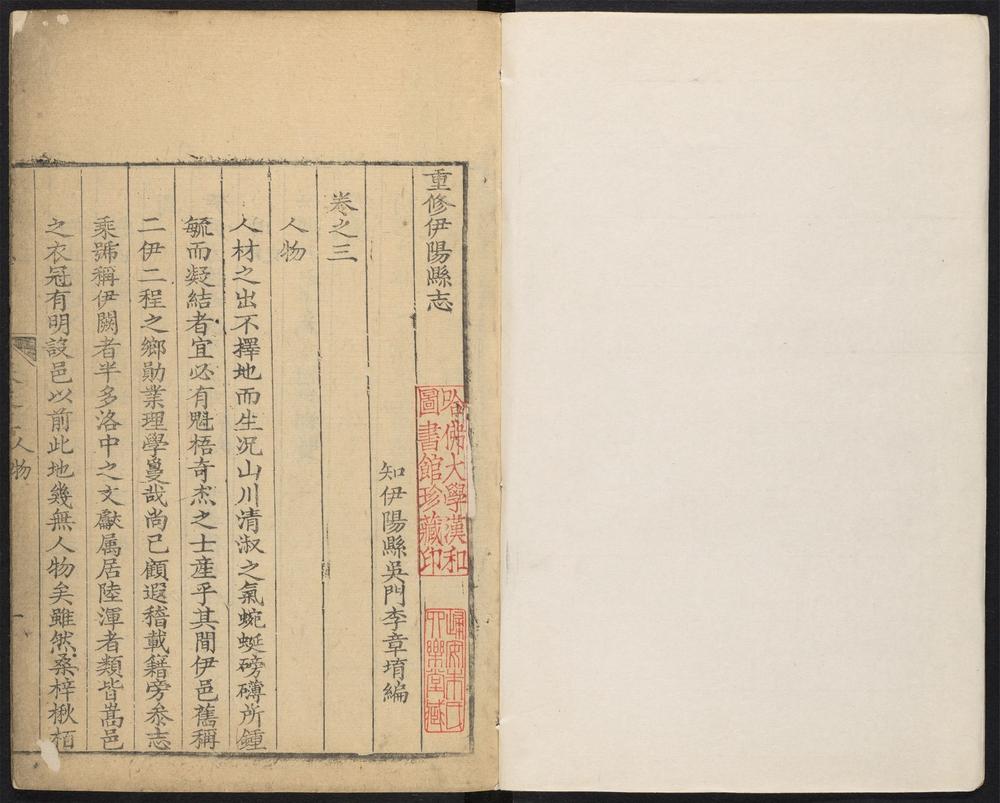 重修伊陽縣志
知伊陽縣吳門李章堉編
卷之三
人物
人材之出不擇地而生况山川清淑之氣蜿蜒磅礴所鍾
毓而凝結者宜必有魁梧奇杰之士產乎其間伊邑舊稱
二伊二程之鄉勛業理學敻哉尚已顧遐稽載籍旁叅志
乘號稱伊闕者半多洛中之文獻属居陸渾者類皆嵩邑
之衣冠有明設邑以前此地幾無人物矣雖然桑梓楸栢
人物
一
哈佛大學漢和
圖書館珍藏印